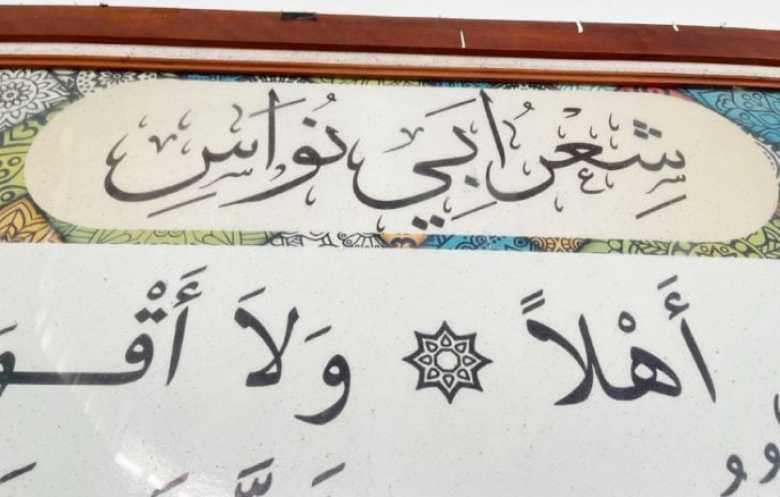 شِعْرُ ابَي نُوَاسِ
أَهْلاً ۞ وَلاَ أَقْو